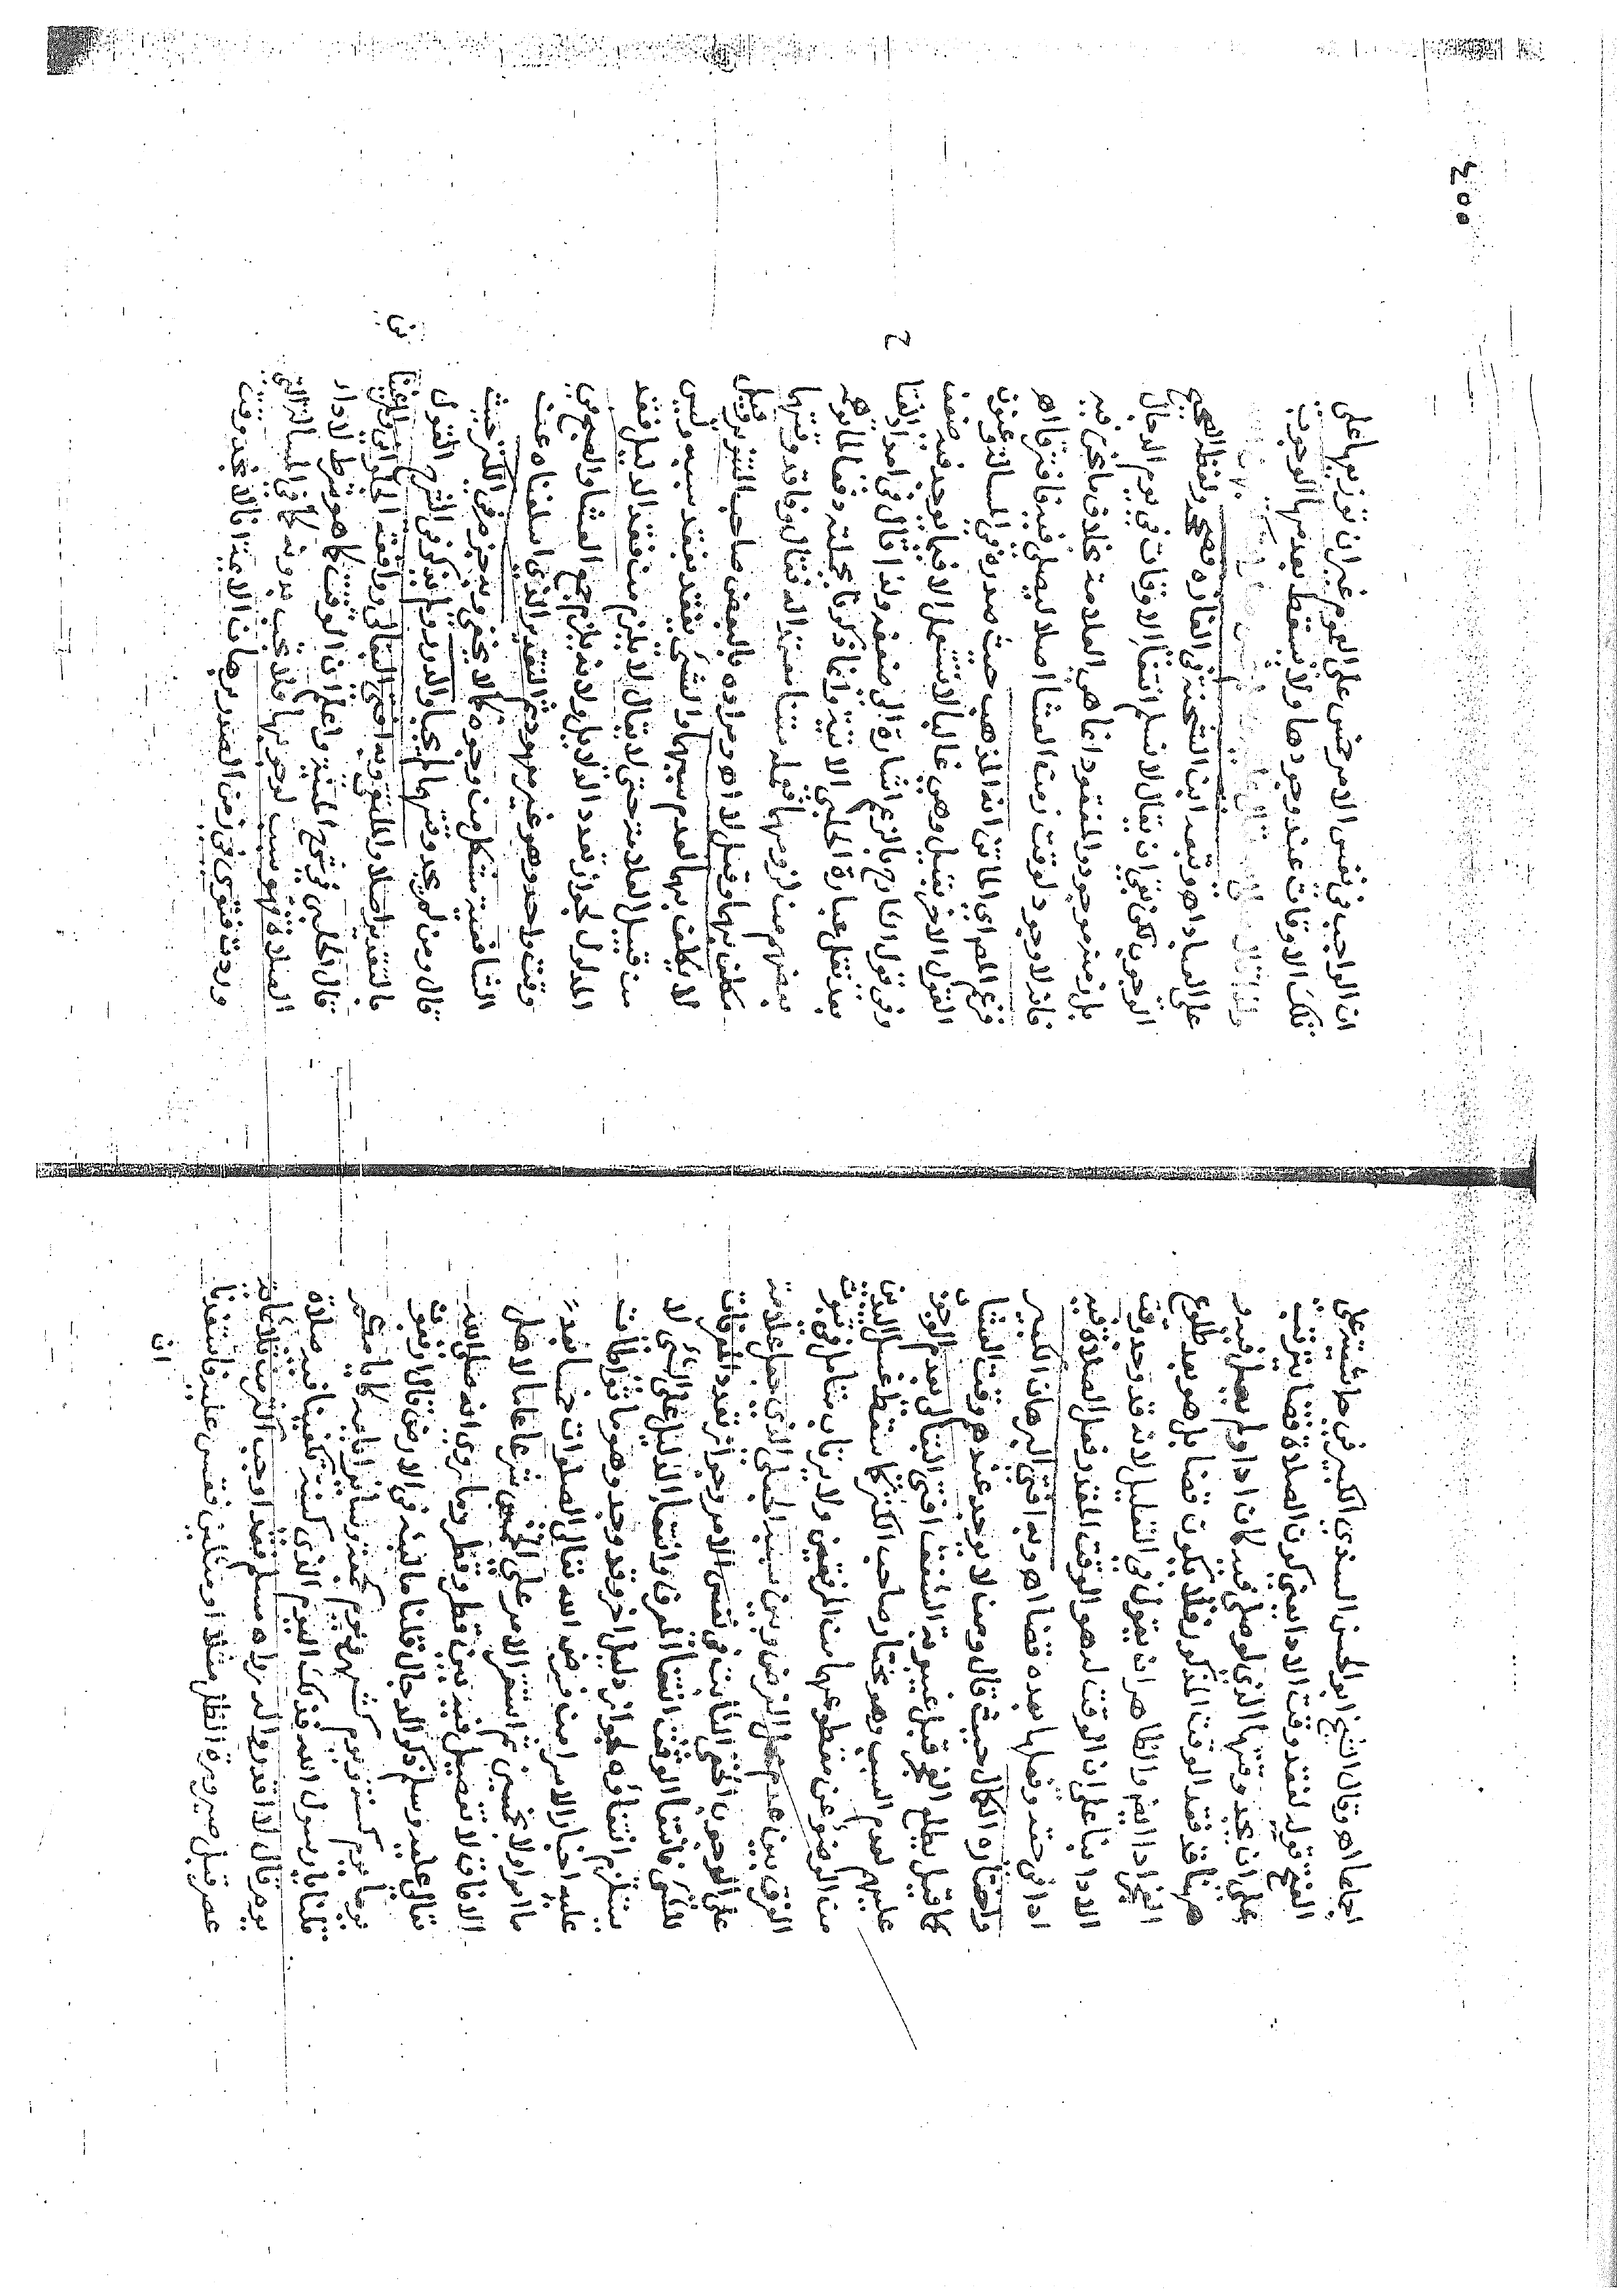 اجماعا اه وقال الشيخ ابو الحسن السندي الكبير في حاشيته على
الفتح قوله لفقد وقت الادا يعني كون الصلاة قضا يترتب
على ان يجد وقتها الذي لو صلى فيه كان ادا ولم يصل فيه و
ههنا قد فقد الوقت المذكور فلا يكون قضا بل هو بعد طلوع
الفجر ادا ايضا والظاهر ان يقول في التعليل لانه قد وجد وقت
الادا بنا على ان الوقت له هو الوقت المقدر وفعل الصلاة فيه
ادا في حقه وفعلها بعده قضا اه وبه افتى البرهان الكبير
واختاره الكمال حيث قال ومن لا يوجد عندهم وقت العشا
كما قيل يطلع الفجر قبل غيبوبة الشفق افتى البقالي بعدم الوجوب
عليهم لعدم السبب وهو مختار صاحب الكنز كما يسقط غسل اليدين
من الوضوء عن مقطوعهما من المرفقين ولا يرتاب متامل في ثبوت
الفرق بين عدم محل الفرض وبين سببه الجعلي الذي جعل علامة
على الوجوب الخفي الثابت في نفس الامر وجواز تعدد المعرفات
للشئ فانتفا الوقت انتفا المعرف وانتفا الدليل على الشئ لا
يستلزم انتفاءه لجواز دليل اخر وقد وجد وهو ما تواطات
عليه اخبار الاسرا من فرض الله تعالى الصلوات خمسا بعد
ما امر اولا بخمسين ثم استقر الامر على الخمس شرعا عاما لاهل
الافاق لا تفصيل فيه بين قطر وقطر وما روي انه صلى الله
تعالى عليه وسلم ذكر الدجال قلنا ما لبثه في الارض قال اربعون
يوما يوم كسنة ويوم كشهر ويوم كجمعة وسائر ايامه كايامكم
قلنا يا رسول الله فذلك اليوم الذي كسنة تكفينا فيه صلاة
يوم قال لا اقدروا له رواه مسلم فقد اوجب اكثر من ثلاثمائة
عصر قبل صيرورة الظل مثلا او مثلين فقس عليه فاستفدنا
ان
ان الواجب في نفس الامر خمس على العموم غير ان توزيعها على
تلك الاوقات عند وجودها ولا يسقط بعدمها الوجوب
ولذا قال
على العباد اه وتبعه ابن الشحنة في الغازه فصححه ولفظ الصحيح
الوجوب لكن بقي ان يقال لا نسلم انتفا الاوقات في يوم الدجال
بل زمنه موجود والمفقود انما هي العلامة بخلاف ما نحن فيه
فانه لا وجود لوقت زمن العشا اصلا ليصلى فيه فافترقا اه
فزعم المص اي الماتن انه المذهب حيث صدره في المسالة وعنون
القول الاخر بقيل وهي غالبا لا تستعمل الا فيما يوجد فيه ضعف
وفي قول الشارح بالزعم اشارة الى ضعفه ولذا قال في امداد الفتا
بعد نقل عبارة الحلبي الاتية وانما ذكرنا بجملته دفعا لما توهم
بعضهم من لزومها فجعله متنا نعته اله فقال وفاقد وقتهما
مكلف بهما وقيل لا اه ومراده بالبعض صاحب التنوير وقيل
لا يكلف بهما لعدم سببهما والشئ يفقد بفقد سببه وليس
من قبيل العلامة حتى لا يقال لا يلزم من فقد الدليل فقد
المدلول لجواز تعدد الدلايل ولانه يلزم جمع العشا والصبح في
وقت واحد وهو غير معهود ثم التقدير الذي اسلفناه عند
الشافعية مشكل من وجوه كما لا يخفى وبه جزم في الكنز حيث
قال ومن لم يجد وقتهما لم يجبا والدرر ولم يذكر في الشرح القول
بالتقدير اصلا والملتقى وبه افتى البقالي ووافقه الحلواني والمرغينا
قال الحلبي في شرح المنية واعلم ان الوقت كما هو شرط لادا
الصلاة فهو سبب لوجوبها فلا تجب بدونه كما في المسالة التي
وردت فتوى في زمن الصدر برهان الايمة انا لا نجد وقت